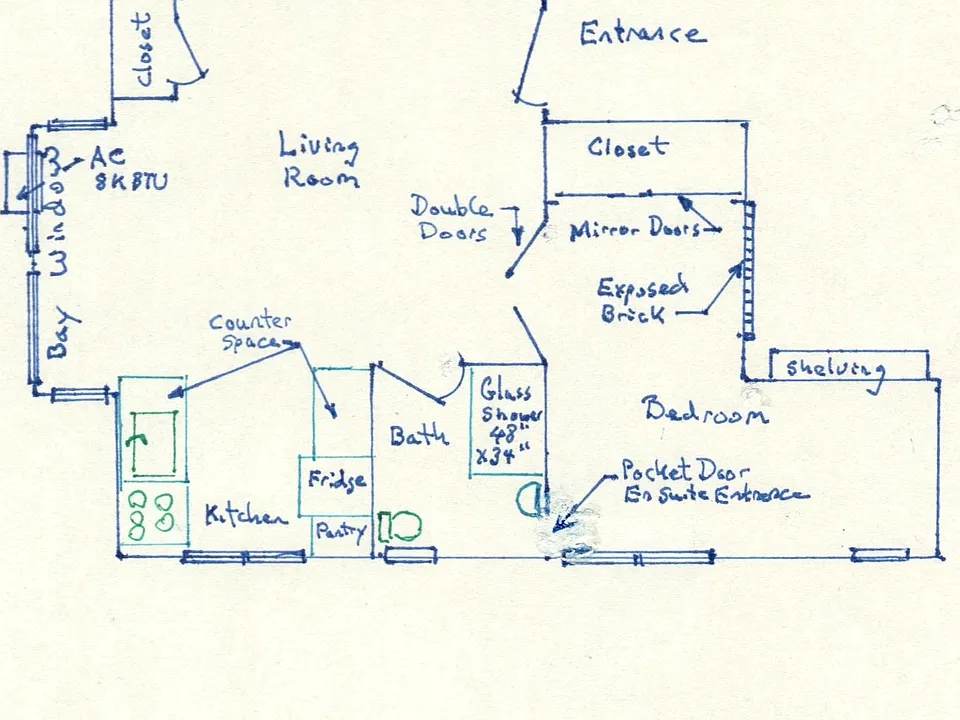 Closet
Entrance
Living
Room
Closet
AC
8K BTU
Bay Window
Double
Doors
Mirror Doors
Exposed
Brick
Counter
Space
Shelving
Glass
Shower
48"
x34"
Bath
Bedroom
Fridge
Pocket Door
En Suite Entrance
Kitchen
Pantry